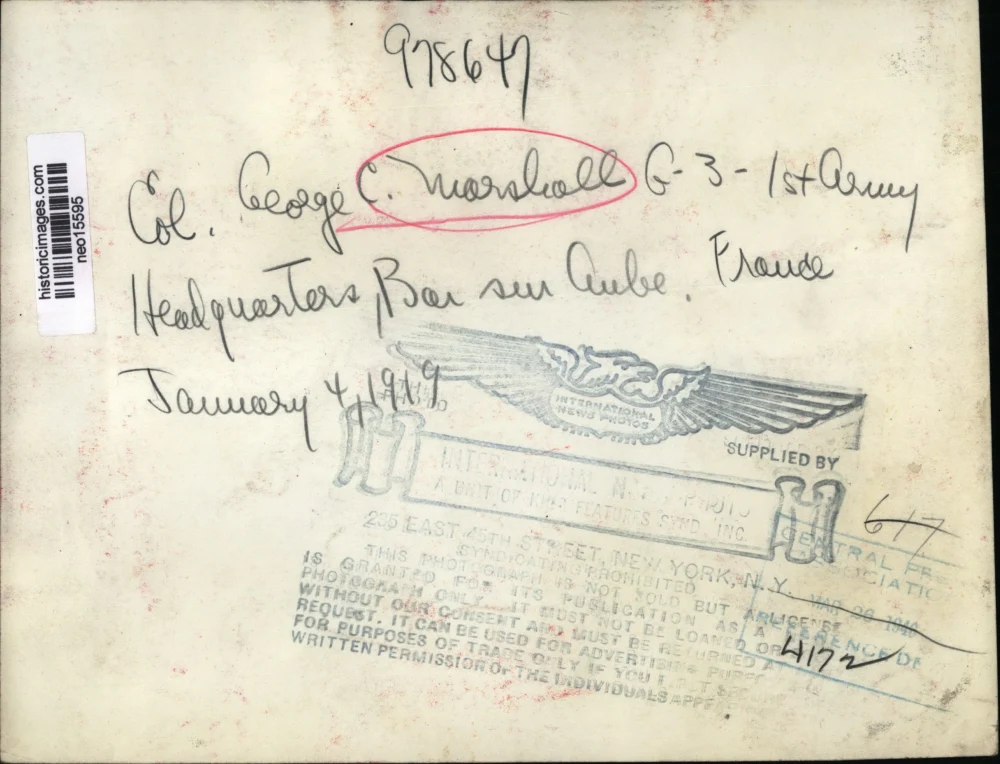 978647
historicimages.com
neo15595
Col. George C. Marshall G-3- 1st Army
Headquarters, Bar sur Aube, France
January 4, 1919
INTERNATIONAL
NEWS PHOTOS
SUPPLIED BY
INTERNATIONAL
A UNIT OF KING FEATURES SYND., INC.
235 EAST 45TH STREET, NEW YORK, N.Y.
SYNDICATING PROHIBITED
THIS PHOTOGRAPH IS NOT SOLD BUT A LICENSE
IS GRANTED FOR ITS PUBLICATION AS A
PHOTOGRAPH ONLY. IT MUST NOT BE LOANED OR
WITHOUT OUR CONSENT AND MUST BE RETURNED AT
REQUEST. IT CAN BE USED FOR ADVERTISING
FOR PURPOSES OF TRADE ONLY IF YOU
WRITTEN PERMISSION OF THE INDIVIDUALS
617
CENTRAL PRESS
ASSOCIATION
MAR 26 1946
REFERENCE
4172